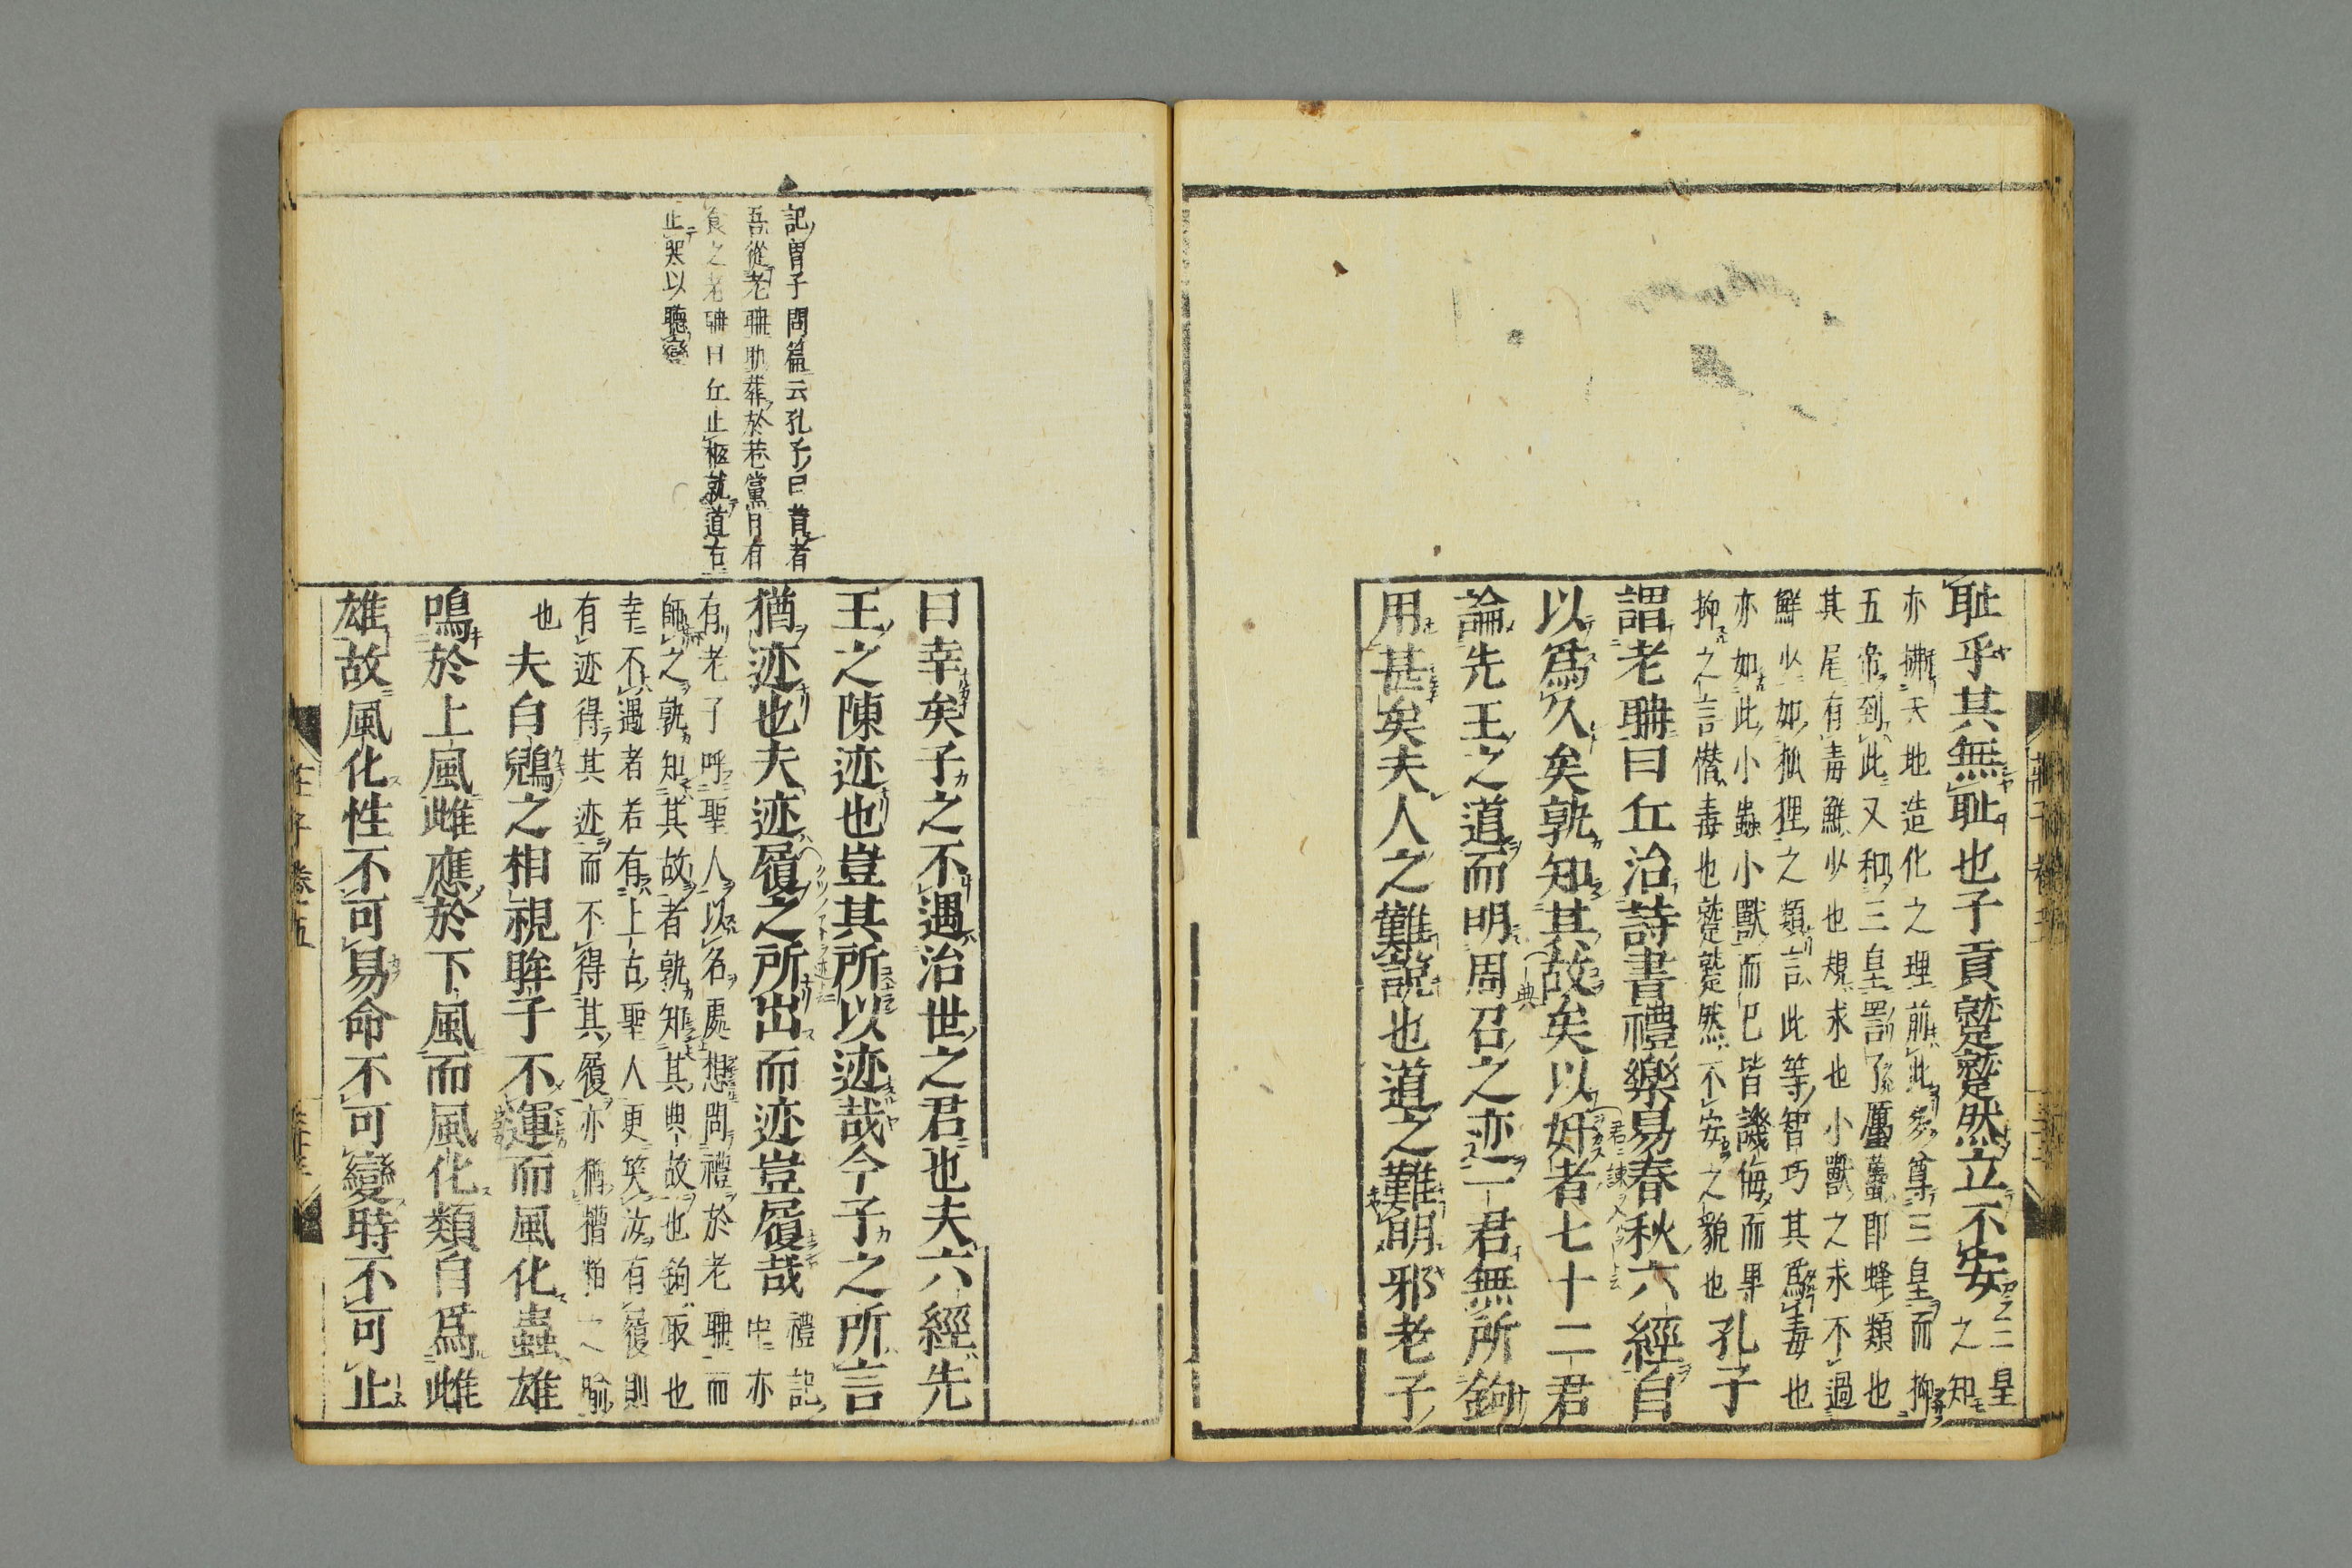 耻乎其無耻也子貢蹵蹵然立不安
三皇
之知
亦拂天地造化之理前此多尊三皇而抑
五帝到此又和三皇罰了厲蠆即蜂類也
其尾有毒鮮少也規求也小獸之求不過
鮮少如狐狸之類言此等智巧其爲毒也
亦如此小蟲小獸而已皆譏侮而畢
抑之言憯毒也蹵蹵然不安之貌也
孔子
謂老聃曰丘治詩書禮樂易春秋六經自
以爲久矣孰知其故矣以奸者七十二君
論先王之道而明周召之迹一君無所鉤
用甚矣夫人之難說也道之難明邪老子
曰幸矣子之不遇治世之君也夫六經先
王之陳迹也豈其所以迹哉今子之所言
猶迹也夫迹履之所出而迹豈履哉
禮記
中亦
有老子呼聖人以名處想問禮於老聃而
師之孰知其故者孰知其典故也鉤取也
幸不遇者若有上古聖人更笑汝有履則
有迹得其迹而不得其履亦猶糟粕之喻
也
夫白鶂之相視眸子不運而風化蟲雄
鳴於上風雌應於下風而風化類自爲雌
雄故風化性不可易命不可變時不可止
記曾子問篇云孔子曰昔者
吾從老聃助葬於巷黨日有
食之老聃曰丘止柩就道右
止哭以聽變
莊子卷五